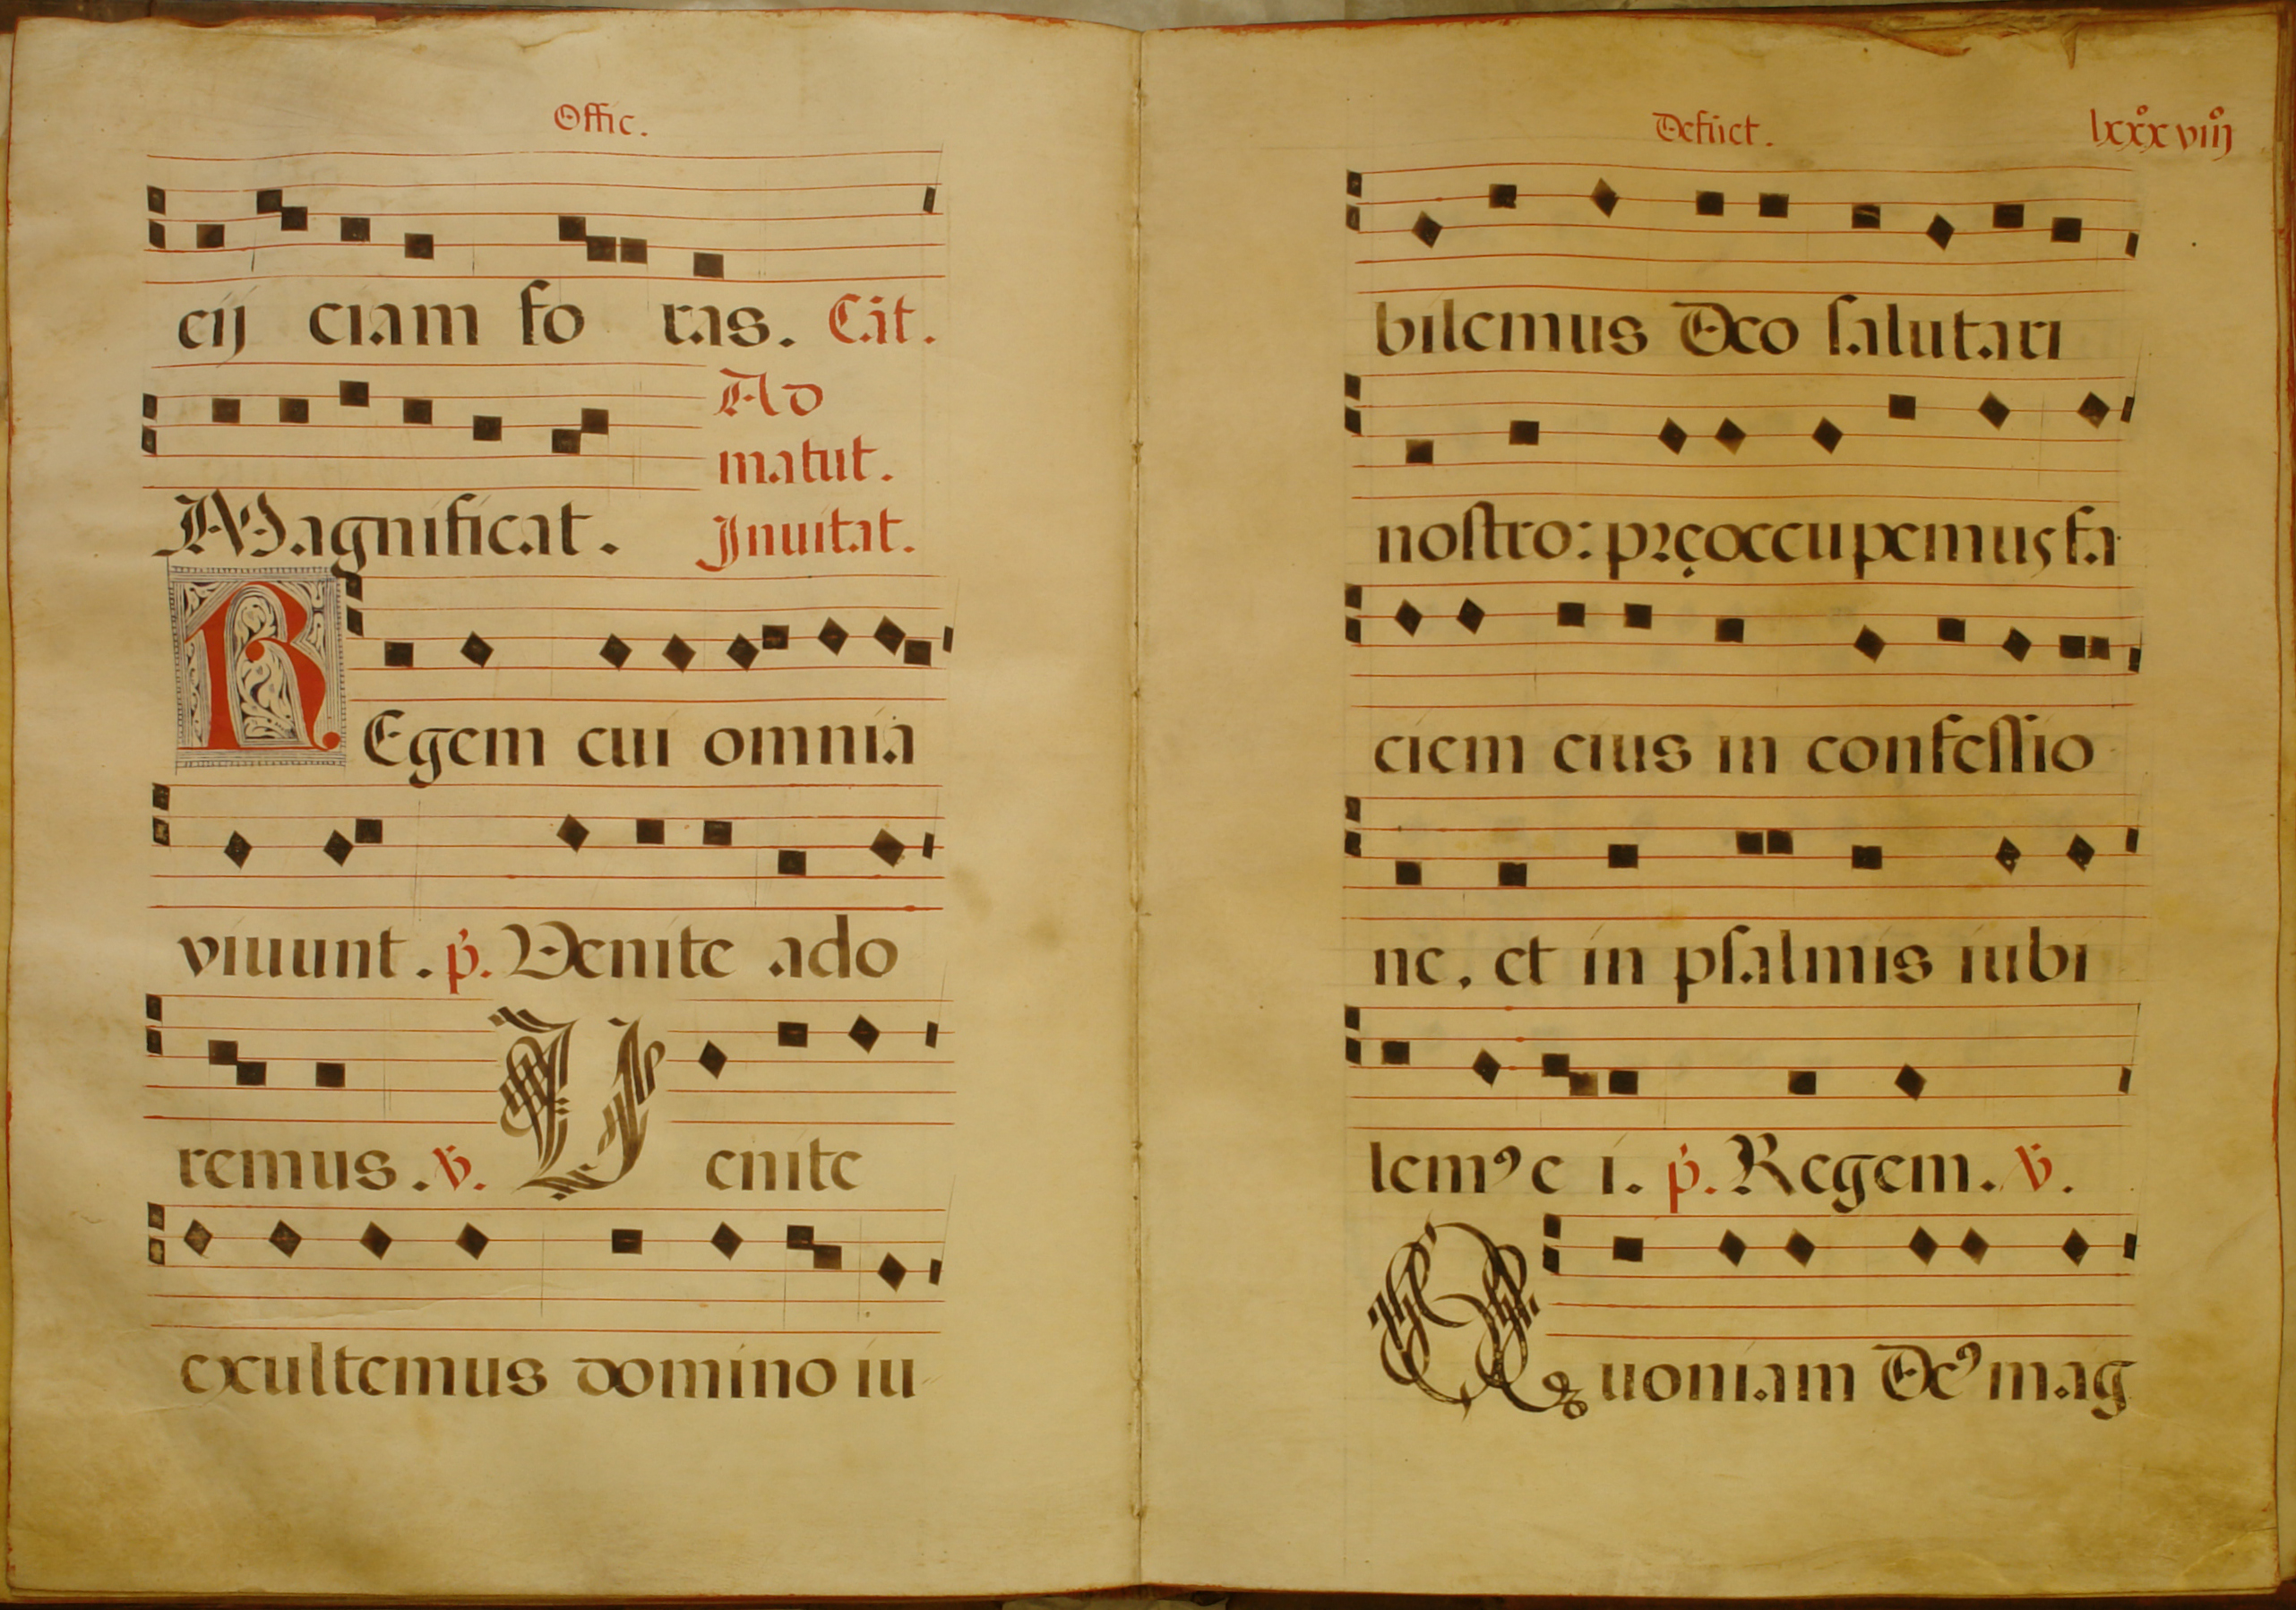 Offic.
cij ciam fo ras. Cät.
Ad
matut.
Magnificat. Inuitat.
REgem cui omnia
viuunt. p̃. Venite ado
remus. ꝟ. Venite
exultemus domino iu
Defũct. lxxxviiij
bilemus Deo ſalutari
noſtro: pręoccupemus fa
ciem eius in confeſſio
ne, et in pſalmis iubi
lemꝰ e i. p̃. Regem. ꝟ.
Quoniam Deꝰ mag